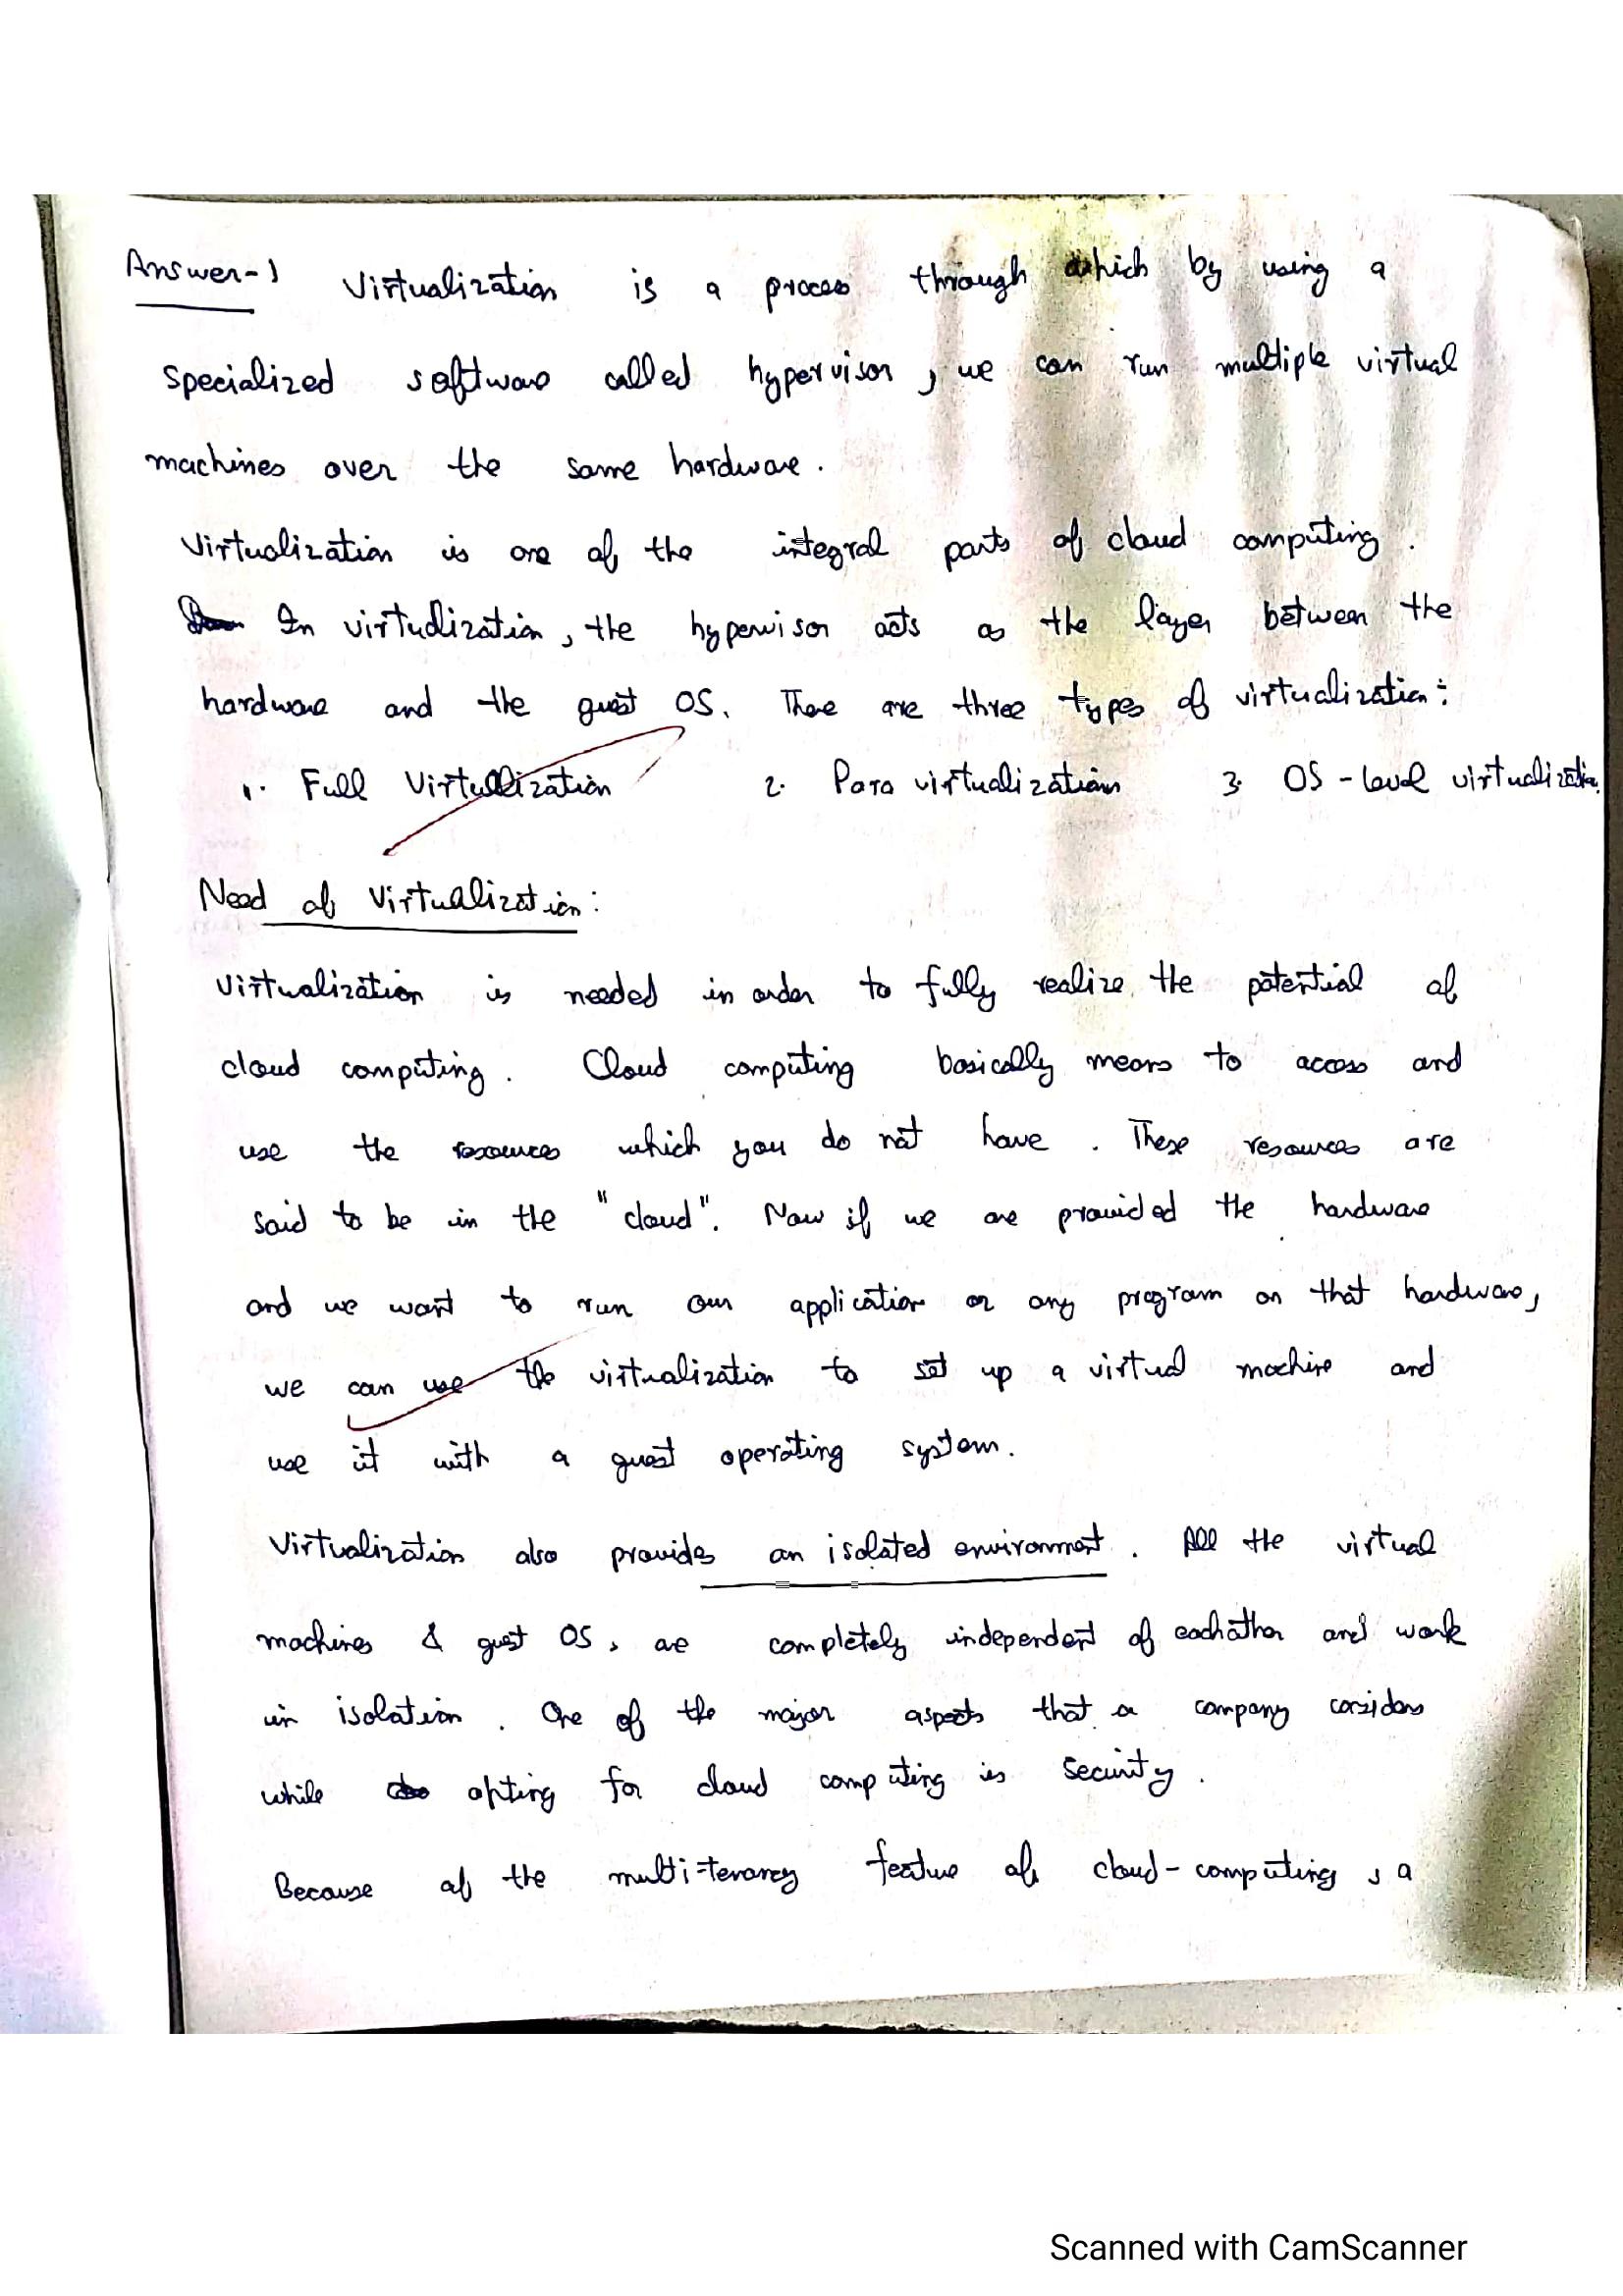 Answer-1 Virtualization is a process through which by using a
specialized software called hypervisor, we can run multiple virtual
machines over the same hardware.
Virtualization is one of the integral parts of cloud computing.
In virtualization, the hypervisor acts as the layer between the
hardware and the guest OS. There are three types of virtualization:
1. Full Virtualization 2. Para virtualization 3. OS-level virtualization
Need of Virtualization:
Virtualization is needed in order to fully realize the potential of
cloud computing. Cloud computing basically means to access and
use the resources which you do not have. These resources are
said to be in the "cloud". Now if we are provided the hardware
and we want to run our application or any program on that hardware,
we can use the virtualization to set up a virtual machine and
use it with a guest operating system.
Virtualization also provides an isolated environment. All the virtual
machines & guest OS, are completely independent of eachother and work
in isolation. One of the major aspects that a company considers
while opting for cloud computing is security.
Because of the multi-tenancy feature of cloud-computing, a
Scanned with CamScanner